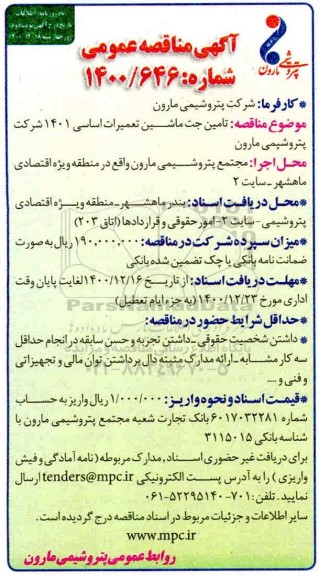 پتروشیمی مارون
آگهی مناقصه عمومی
شماره: ۱۴۰۰/۶۴۶
*کارفرما: شرکت پتروشیمی مارون
موضوع مناقصه: تامین جت ماشین تعمیرات اساسی ۱۴۰۱ شرکت
پتروشیمی مارون
محل اجرا: مجتمع پتروشیمی مارون واقع در منطقه ویژه اقتصادی
ماهشهر ـ سایت ۲
*محل دریافت اسناد: بندر ماهشهر ـ منطقه ویژه اقتصادی
پتروشیمی - سایت ۲ - امور حقوقی و قراردادها (اتاق ۲۰۳)
*میزان سپرده شرکت در مناقصه: ۱۹۰,۰۰۰,۰۰۰ ریال به صورت
ضمانت نامه بانکی یا چک تضمین شده بانکی
*مهلت دریافت اسناد: از تاریخ ۱۴۰۰/۱۲/۱۶ لغایت پایان وقت
اداری مورخ ۱۴۰۰/۱۲/۲۳ (به جزء ایام تعطیل)
*حداقل شرایط حضور در مناقصه:
داشتن شخصیت حقوقی ـ داشتن تجربه و حسن سابقه در انجام حداقل
سه کار مشابه ـ ارائه مدارک مثبته دال برداشتن توان مالی و تجهیزاتی
و فنی و ....
*قیمت اسناد و نحوه واریز: ۱/۰۰۰/۰۰۰ ریال واریز به حساب
شماره ۶۰۱۷۰۳۲۲۸۱ بانک تجارت شعبه مجتمع پتروشیمی مارون با
شناسه بانکی ۳۱۱۵۰۱۵
برای دریافت غیر حضوری اسناد، مدارک مربوطه (نامه آمادگی و فیش
واریزی) را به آدرس پست الکترونیکی tenders@mpc.ir ارسال
نمایید. تلفن: ۷۰۱-۵۲۲۹۵۱۴۰-۰۶۱
سایر اطلاعات و جزئیات مربوط در اسناد مناقصه درج گردیده است.
www.mpc.ir
روابط عمومی پتروشیمی مارون
ParsNamadData
۰۲۱-۸۸۳۴۹۶۷۰-۵